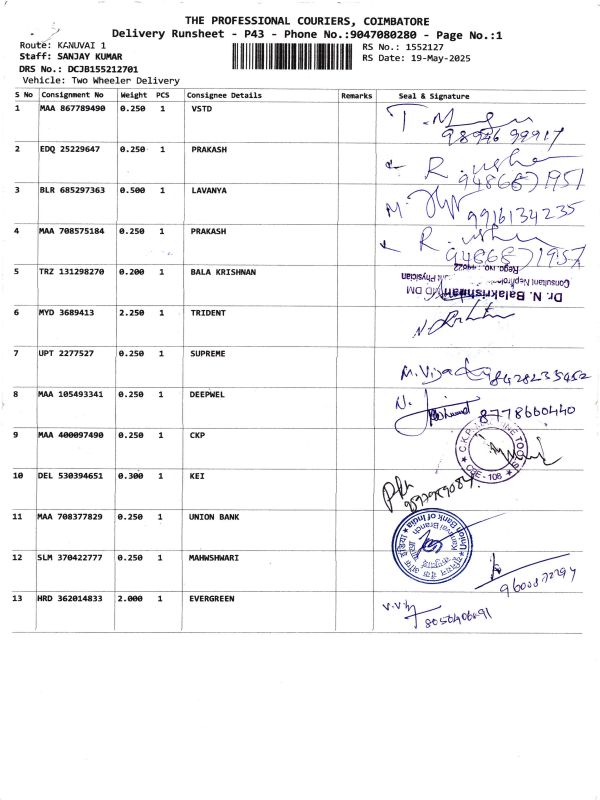 THE PROFESSIONAL COURIERS, COIMBATORE
Delivery Runsheet - P43 - Phone No.:9047080280 - Page No.:1
Route: KANUVAI 1
RS No.: 1552127
Staff: SANJAY KUMAR
RS Date: 19-May-2025
DRS No.: DCJB155212701
Vehicle: Two Wheeler Delivery
S No Consignment No Weight PCS Consignee Details Remarks Seal & Signature
1 MAA 867789490 0.250 1 VSTD
2 EDQ 25229647 0.250 1 PRAKASH
R. usha
9486871951
3 BLR 685297363 0.500 1 LAVANYA
M.
9916134235
4 MAA 708575184 0.250 1 PRAKASH
R. usha
9486871957
5 TRZ 131298270 0.200 1 BALA KRISHNAN
Dr. N. Balakrishnan MD DM
Consultant Nephrologist Physician
Rego. no.
6 MYD 3689413 2.250 1 TRIDENT
7 UPT 2277527 0.250 1 SUPREME
M. Vijay 8428235452
8 MAA 105493341 0.250 1 DEEPWEL
N. 8778660440
9 MAA 400097490 0.250 1 CKP
C.K.P. TOOLS
CBE - 108
10 DEL 530394651 0.300 1 KEI
11 MAA 708377829 0.250 1 UNION BANK
Union Bank of India
Kanuvai Branch
12 SLM 370422777 0.250 1 MAHWSHWARI
13 HRD 362014833 2.000 1 EVERGREEN
V.V.